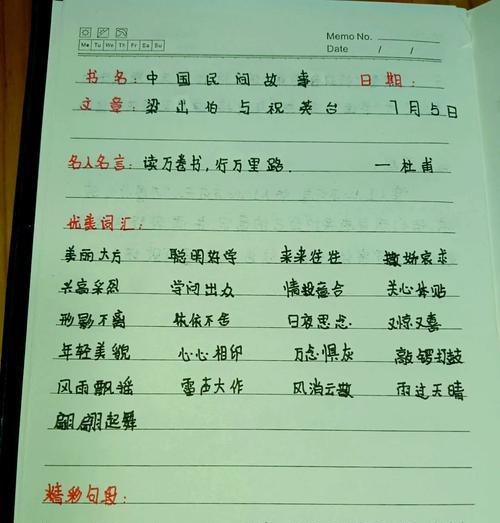 Memo No.
Mo Tu We Th Fr Sa Su
Date / /
书名：中国民间故事 日期：
文章：梁山伯与祝英台 7月5日
名人名言：读万卷书，行万里路. —杜甫
优美词汇：
美丽大方 聪明好学 来来往往 撒娇哀求
兴高采烈 学问出众 情投意合 关心体贴
形影不离 依依不舍 日夜思念 又惊又喜
年轻美貌 心心相印 万念俱灰 敲锣打鼓
风雨飘摇 雷声大作 风消云散 雨过天晴
翩翩起舞
精彩句段：